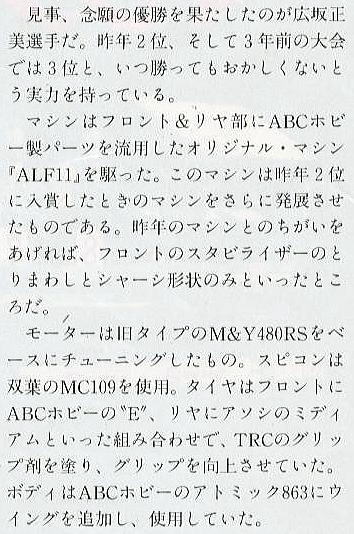 見事、念願の優勝を果たしたのが広坂正
美選手だ。昨年２位、そして３年前の大会
では３位と、いつ勝ってもおかしくないと
う実力を持っている。
マシンはフロント＆リヤ部にABCホビ
ー製パーツを流用したオリジナル・マシン
『ALF11』を駆った。このマシンは昨年２位
に入賞したときのマシンをさらに発展させ
たものである。昨年のマシンとのちがいを
あげれば、フロントのスタビライザーのと
りまわしとシャーシ形状のみといったとこ
ろだ。
モーターは旧タイプのM&Y480RSをベ
ースにチューニングしたもの。スピコンは
双葉のMC109を使用。タイヤはフロントに
ABCホビーの〝E〟、リヤにアソシのミディ
アムといった組み合わせで、TRCのグリッ
プ剤を塗り、グリップを向上させていた。
ボディはABCホビーのアトミック863にウ
イングを追加し、使用していた。